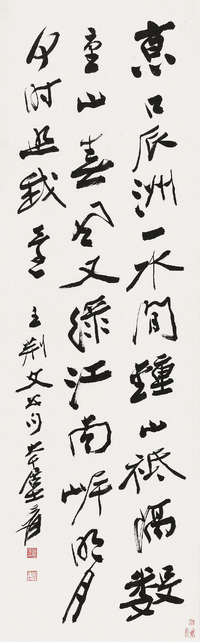 京口瓜洲一水間鍾山祗隔數
重山春風又綠江南岸明月
何时照我還
王荆文公句 爰